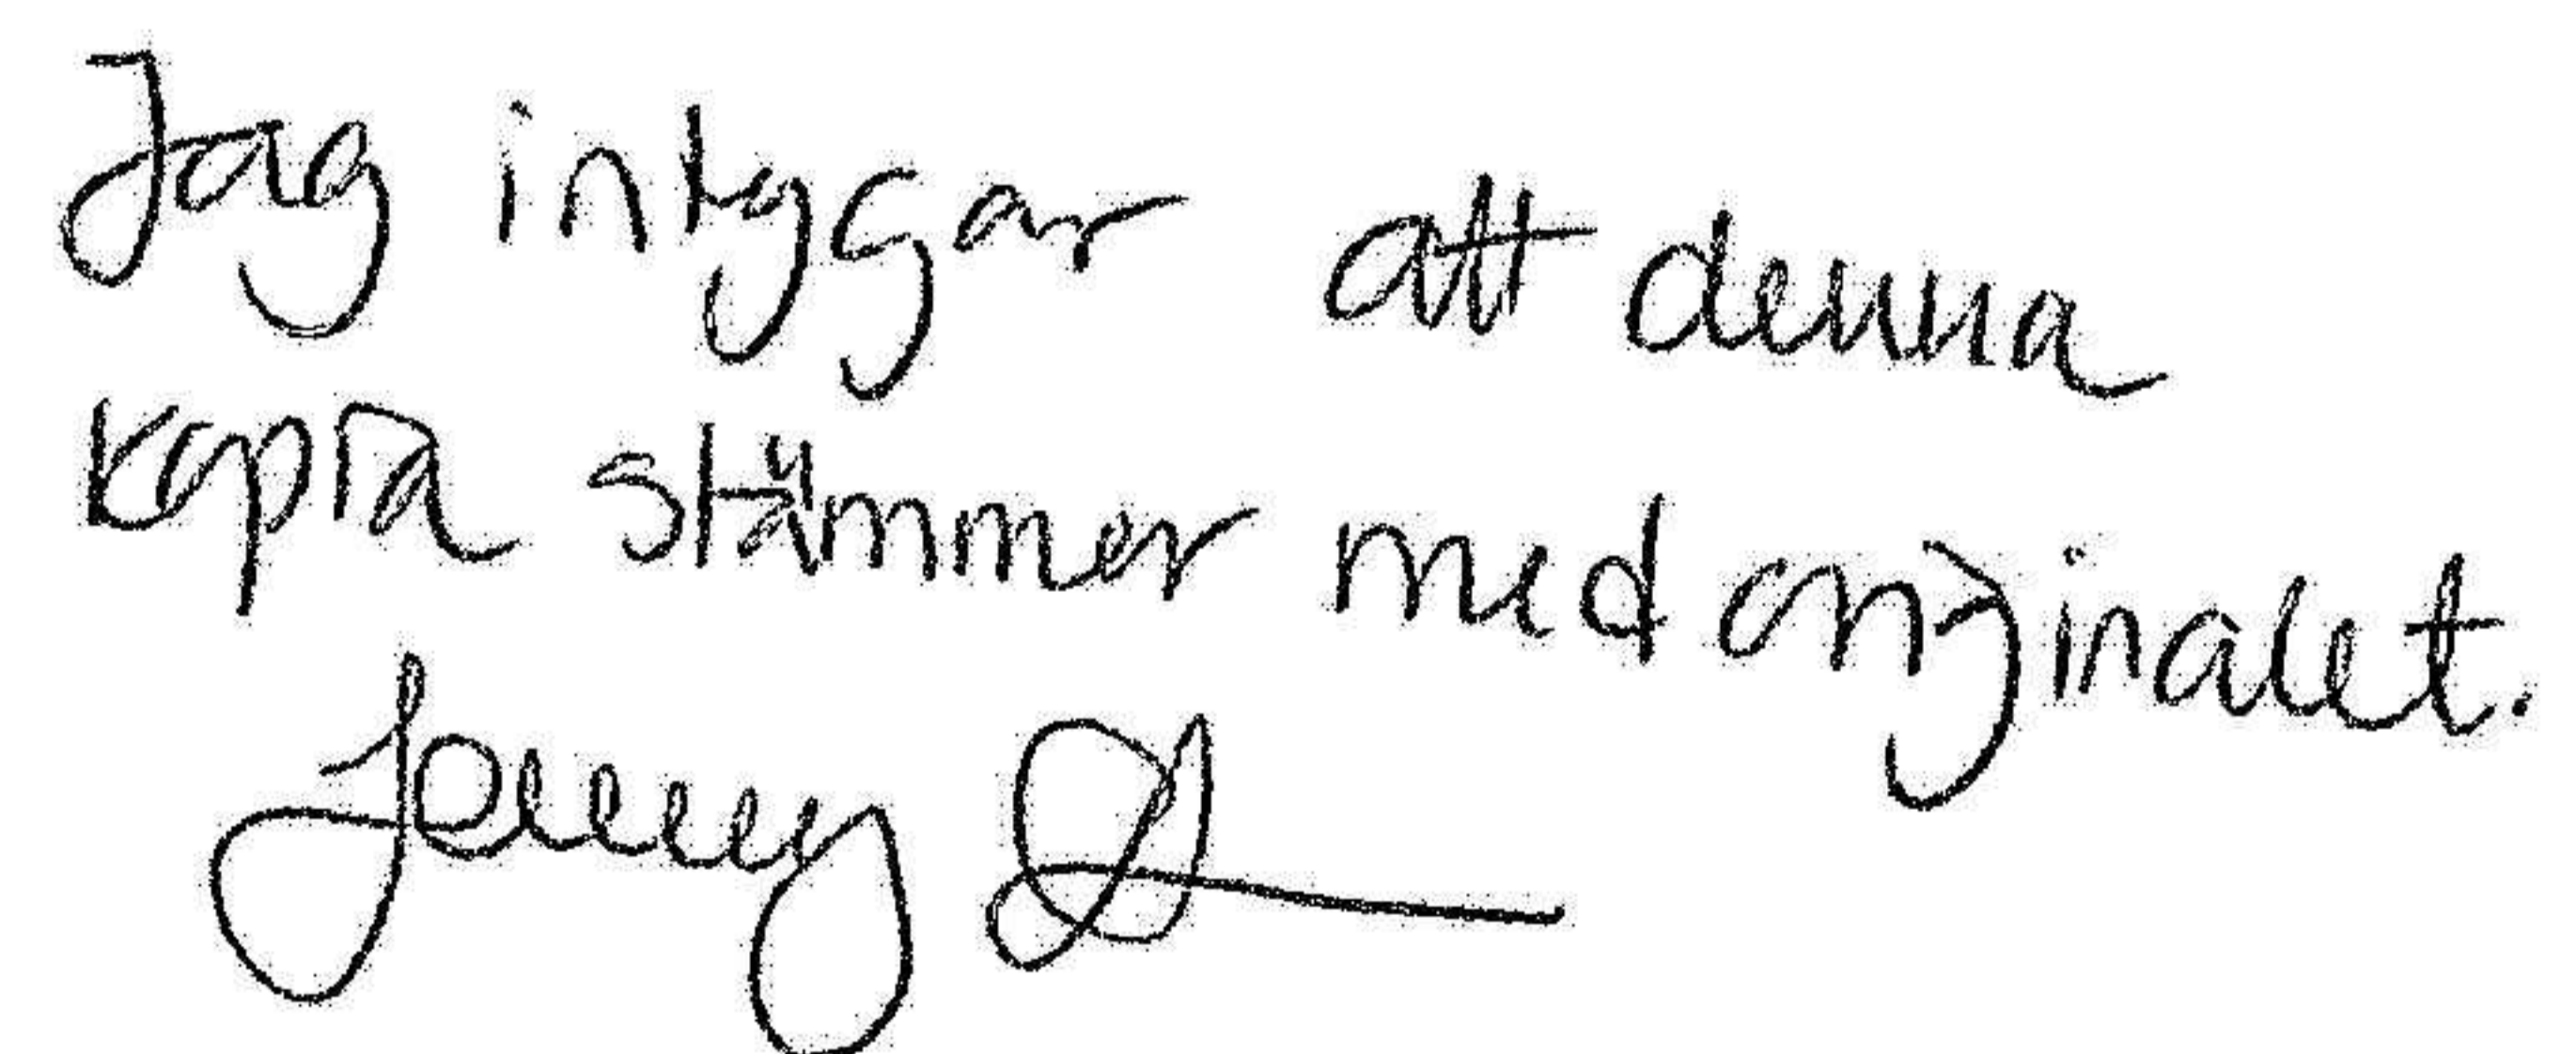 Jag intygar att denna
kopia stämmer med originalet.
Jenny